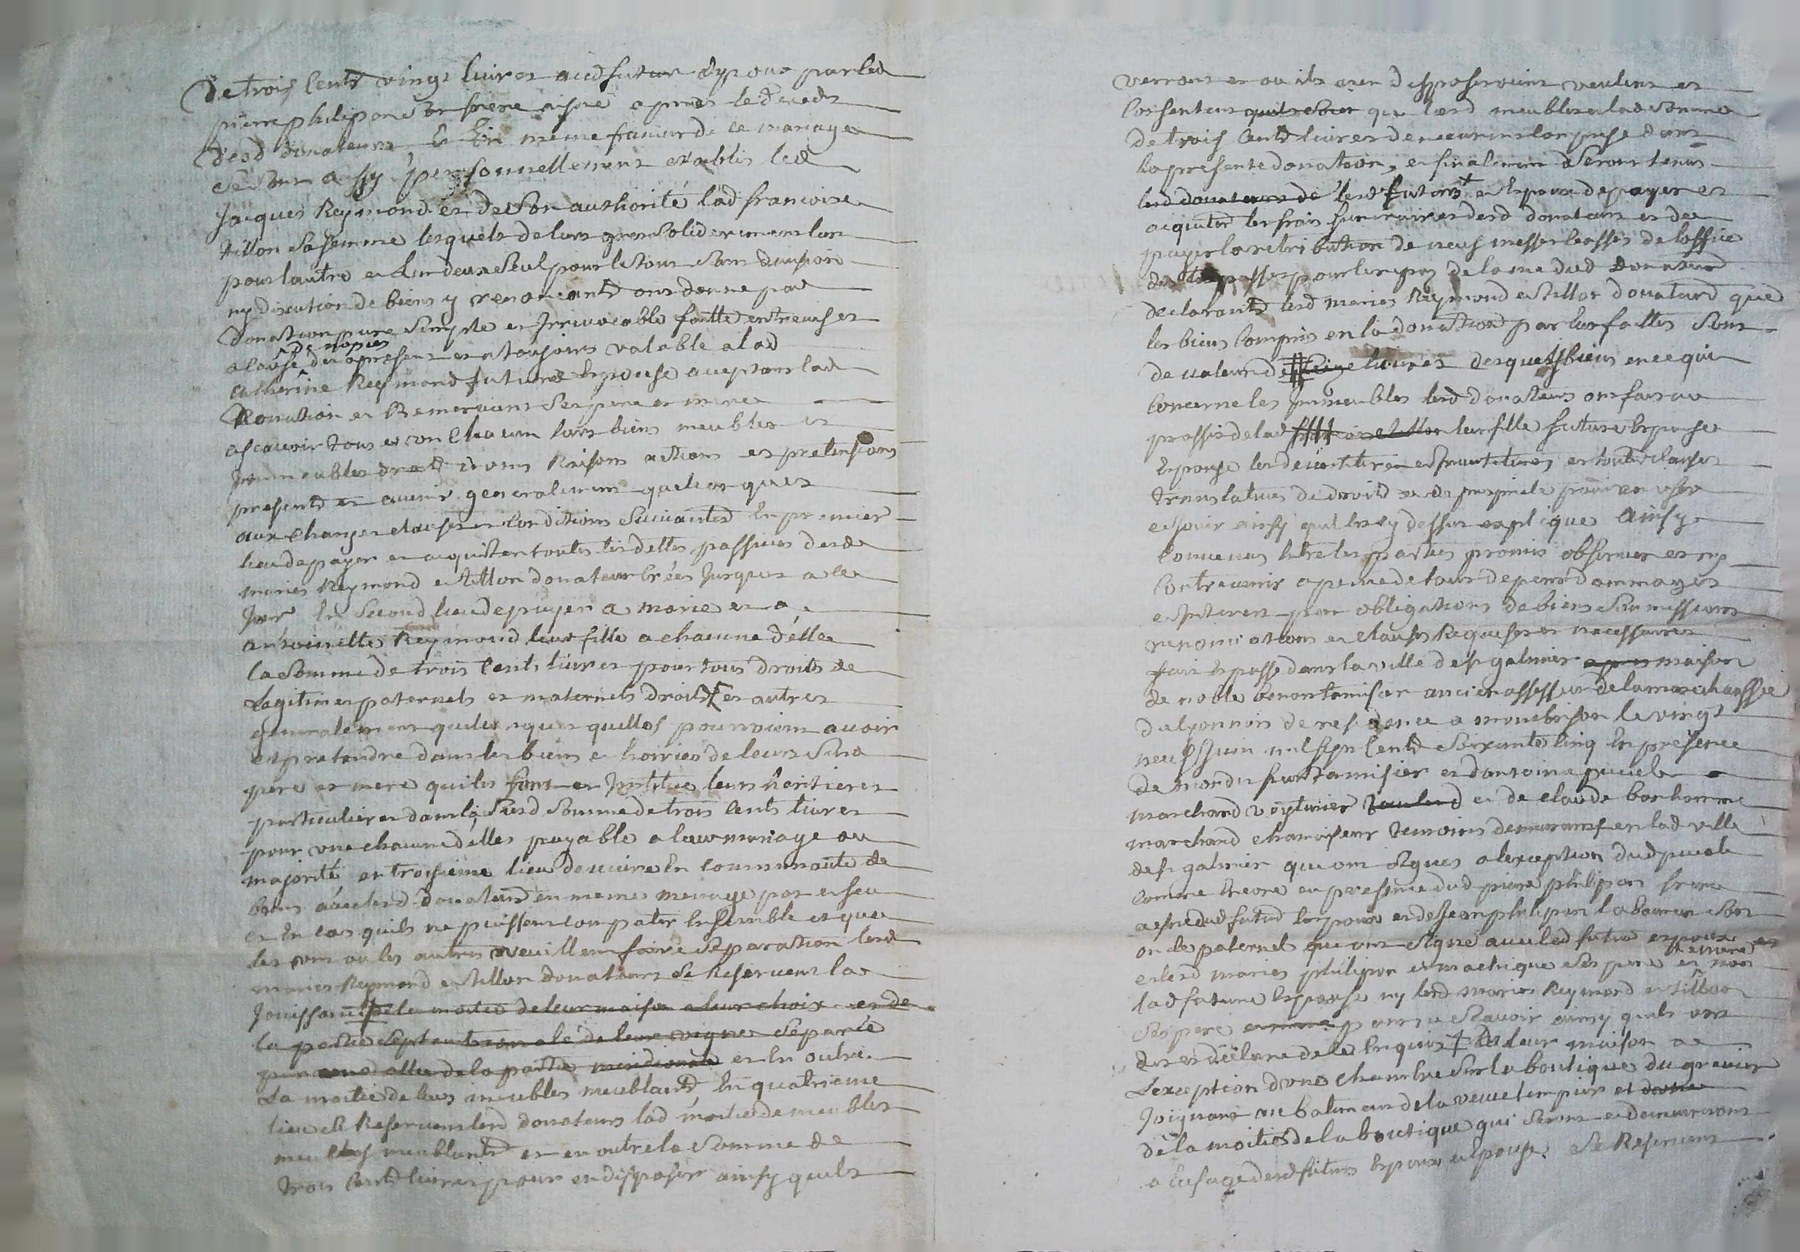 de trois cents vingt livres aud futur epoux par led
pierre philipon son frere aisné apres le deceds
desd donateurs & En meme faveur de ce mariage
se sont aussy personnellement établis led
Jacques Reymond et de son authorité lad francoise
tillon sa femme lesquels de leurs gres solidairement lun
pour lautre et Lun deux seul pour le tout sans division
ny discution de biens y renoncants ont donné par
donation pure simple et Irrevocable faitte entre vifs et
a cause de nopces
des apresent et a toujours valable a lad
Catherine Reymond future Epouse acceptant lad
donation et Remerciant ses pere et mere
ascavoir tous et un chacun leurs biens meubles et
Immeubles droits noms Raisons actions et pretensions
presents et avenir generalement quelconques
aux charges clauses et conditions suivantes En premier
lieu de payer et acquitter toutes les dettes passives desd
maries Reymond et tillon donateurs créés Jusques a ce
Jour En second lieu de payer a marie et a
antoinette Reymond leurs fille a chacune d'elles
la somme de trois cents livres pour tous droits de
Legitimes paternels et maternels droits et autres
generalement quelconques quelles pourroient avoir
et pretendre dans les biens et hoiries de leurs sisd
pere et mere quiles font et Institue leurs heritieres
particulieres dans la susd somme de trois cents livres
pour une chacune d'elles payable a leur mariage ou
majorité en troisieme lieu de vivre En communauté de
biens avec lesd donateurs en meme menage pot et feu
et En cas quils ne puissent compatir Ensemble et que
les uns ou les autres veuillent faire separation lesd
maries Reymond et tillon donateurs se Reservent la
Jouissance de la moitié de leur maison a leur choix et de
la partie septentrionale de leur vigne separée
par une allée de la partie meridionale et En outre
La moitié de leurs meubles meublants En quatrieme
lieu se Reservent lesd donateurs lad moitié de meubles
meubles meublants et en outre la somme de
trois cents livres pour en disposer ainsy quils
verront et ou ils nen disposeroient veulent et
consentent que lesd meubles et lad somme
de trois cents livres demeurent comprise dans
la presente donation, et finalement seront tenus
lesd donateurs de lesd futurs epoux de payer et
acquitter les frais funeraires desd donateurs et de
payer la retribution de neuf messes basses de loffice
des trepasses pour le repos de lame dud donateurs
declarants lesd maries Reymond et tillon donateurs que
les biens compris en la donation par eux faittes sont
de valeur de seize livres desquels biens en ce qui
concerne les Immeubles lesd donateurs ont fait au
proffit de lad leur fille future Epouse
Epouse les devestitures et Investitures et toutte clauses
translatives de droits et de proprieté pour en user
et Jouir ainsy quil est cy dessus expliqué Ainsy
convenus Entre les parties promis observer et ny
contrevenir a peine de tous depens dommages
et Interets par obligations de biens soumissions
renonciations et clauses Requises et necessaires
fait et passé dans la ville de st galmier maison
de noble benoit tamisier ancien assesseur de la marechaussée
de lyonnois de residence a montbrison le vingt
neuf Juin mil sept cents soixante cinq En presence
de tamisier et d'antoine pucel
marchand voyturier et de claude bonhomme
marchand chamoiseur temoins demeurants en lad ville
de st galmier qui ont signes a lexception dud pucel
comme Encore en presence dud pierre philipon frere
aisné dud futur Epoux et de Jean philipon laboureur son
oncle paternel qui ont signé avec led futur epoux
et lesd maries philipon et ses pere et mere et non
lad future Epouse ny lesd maries Reymond et tillon
ses pere et mere pour ne scavoir ainsy quils ont
dit et declaré de ce Enquis de leur maison a
L'exception d'une chambre sur la boutique du grenier
Joignant au batiment de la veuve tempier et
de la moitié de la boutique qui seront et demeureront
a l'usage desd futurs Epoux et Epouse. se Reservent